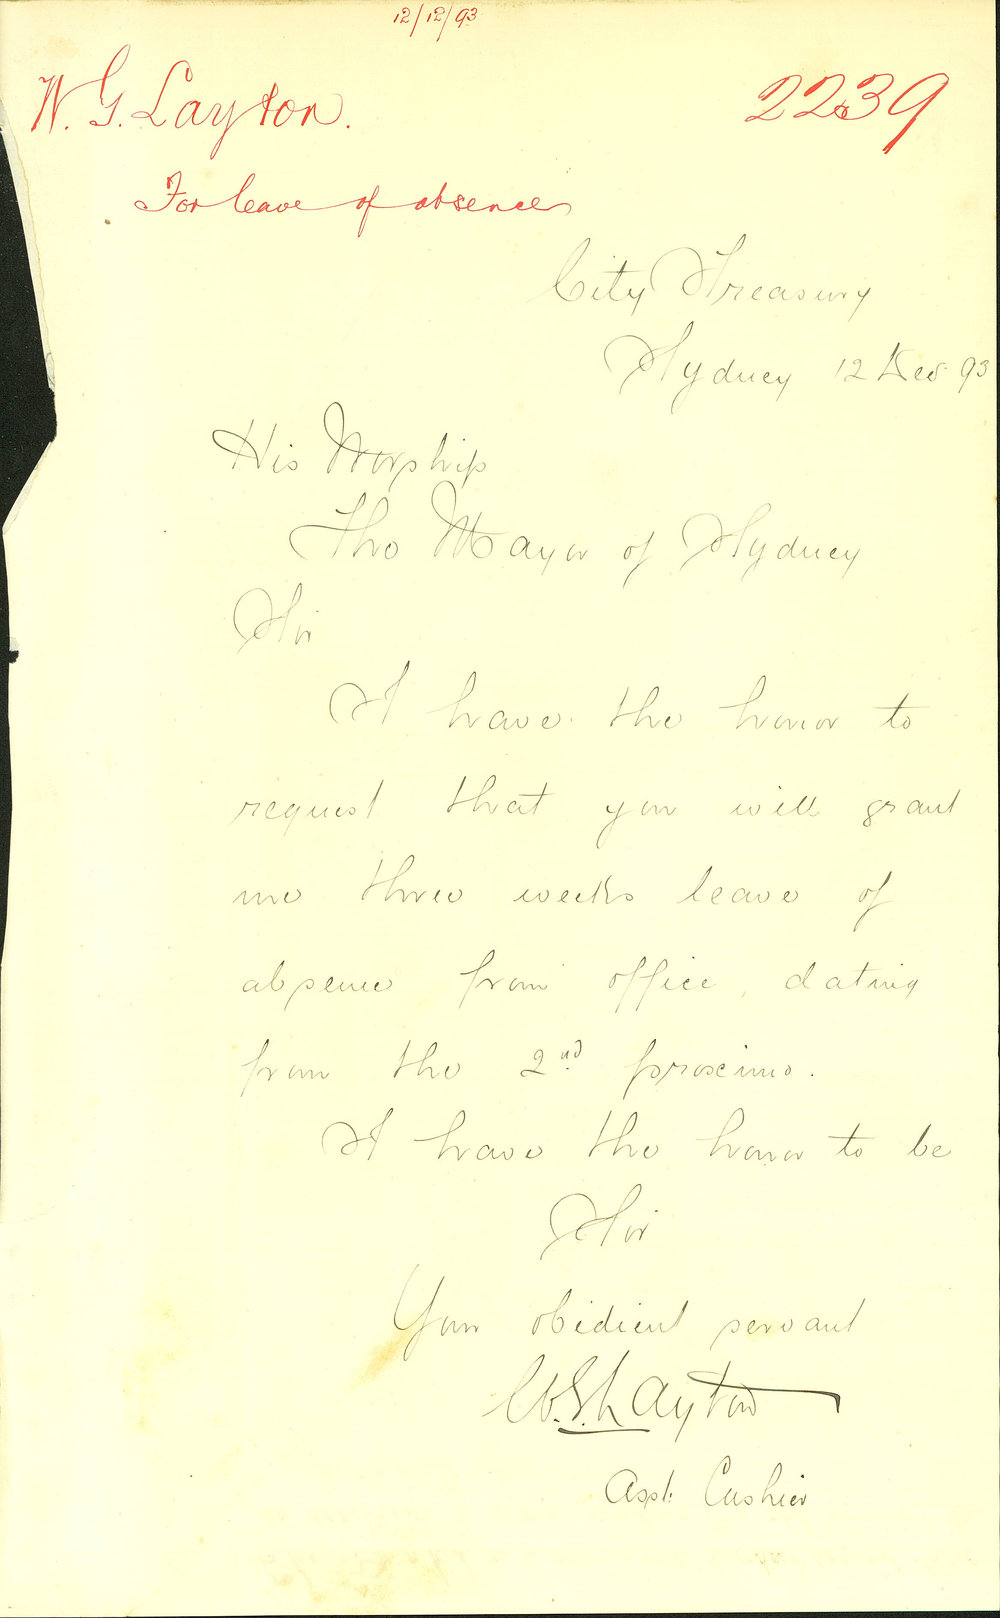 12/12/93
W. G. Layton. 2239
For leave of absence
City Treasury
Sydney 12 Dec 93
His Worship
The Mayor of Sydney
Sir
I have the honor to
request that you will grant
me three weeks leave of
absence from office, dating
from the 2nd proximo.
I have the honor to be
Sir
Your obidient servant
W. G. Layton
Asst. Cashier